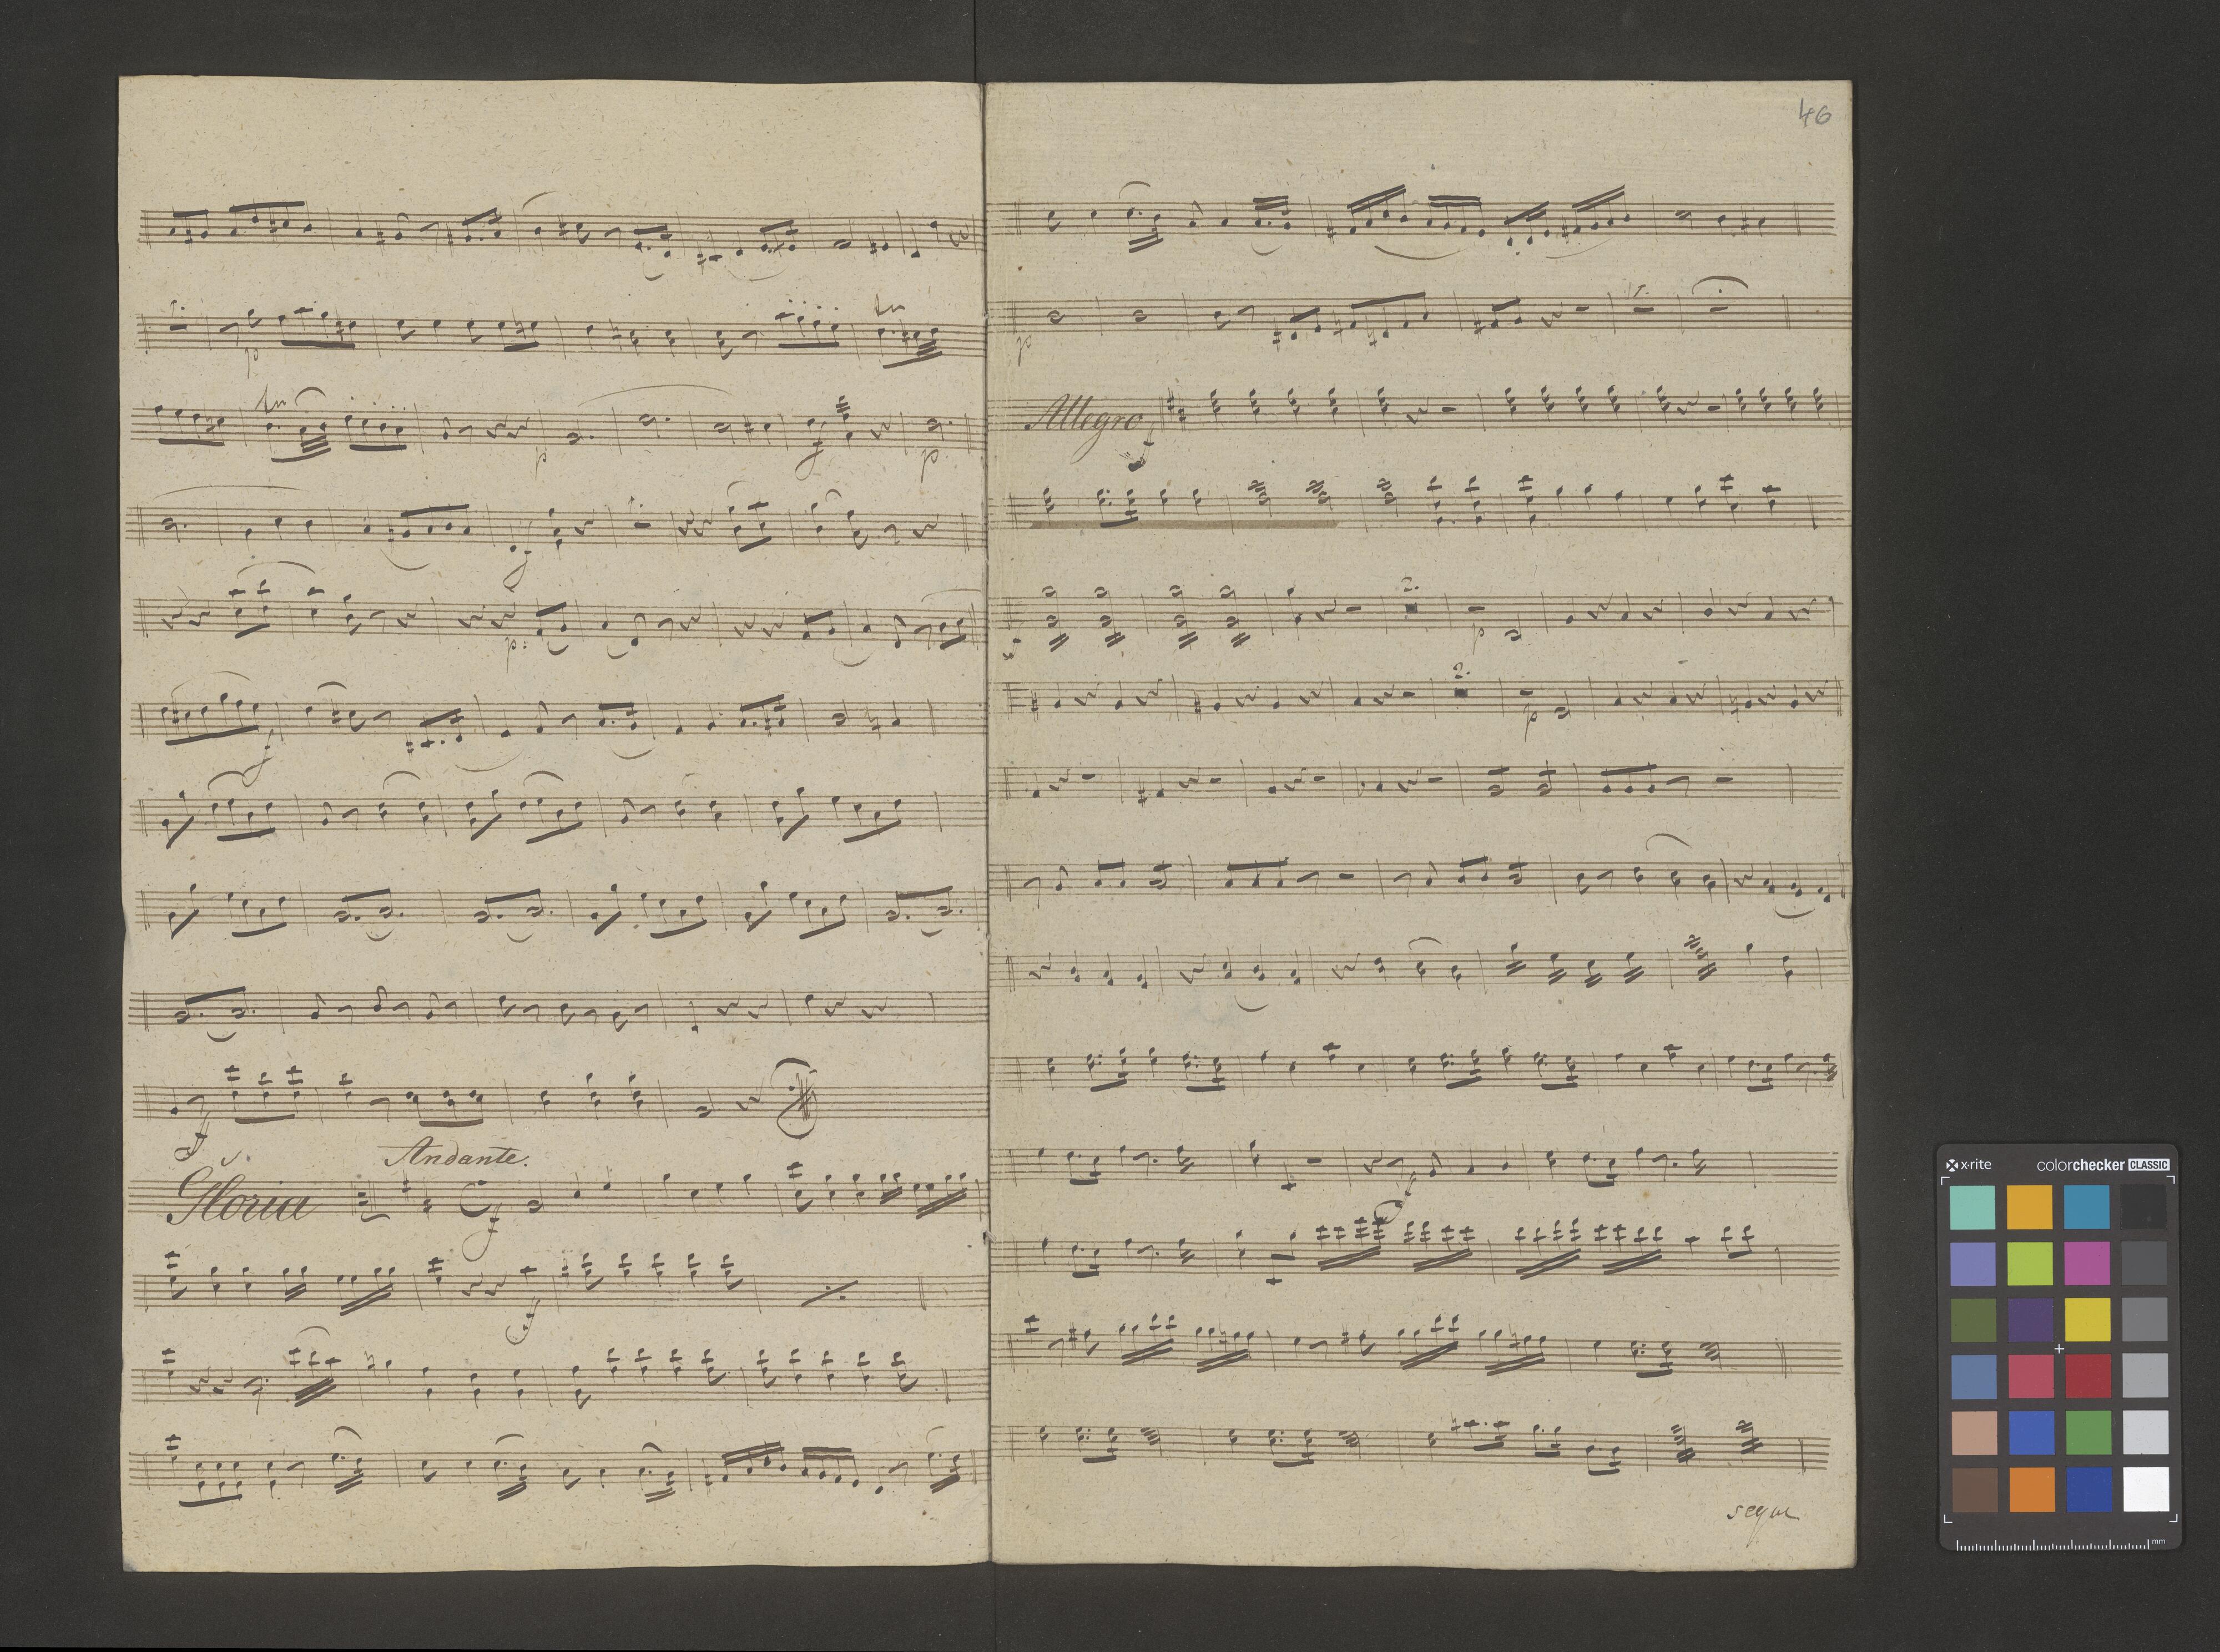 p
tr
tr
p
f
p
f
p:
f
f
Andante.
Gloria
f
f
46
p
Allegro
f
2.
p
2.
p
f
segue
x-rite colorchecker CLASSIC
mm